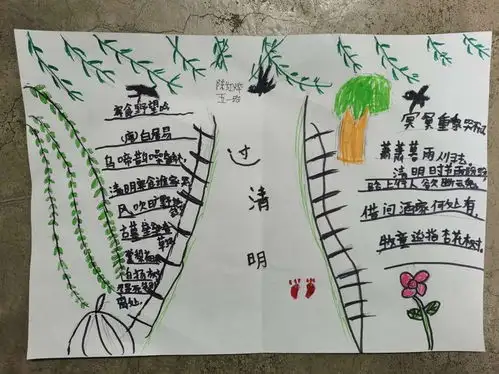 五一班
过清明
寒食野望吟
(唐)白居易
乌啼鹊噪昏乔木,
清明寒食谁家哭
风吹旷野
古墓垒垒
草绿
棠梨花映
白杨树
尽是死生别
离处.
冥冥重泉哭不闻
萧萧暮雨人归去.
清明时节雨纷纷
路上行人欲断魂
借问酒家何处有,
牧童遥指杏花树.